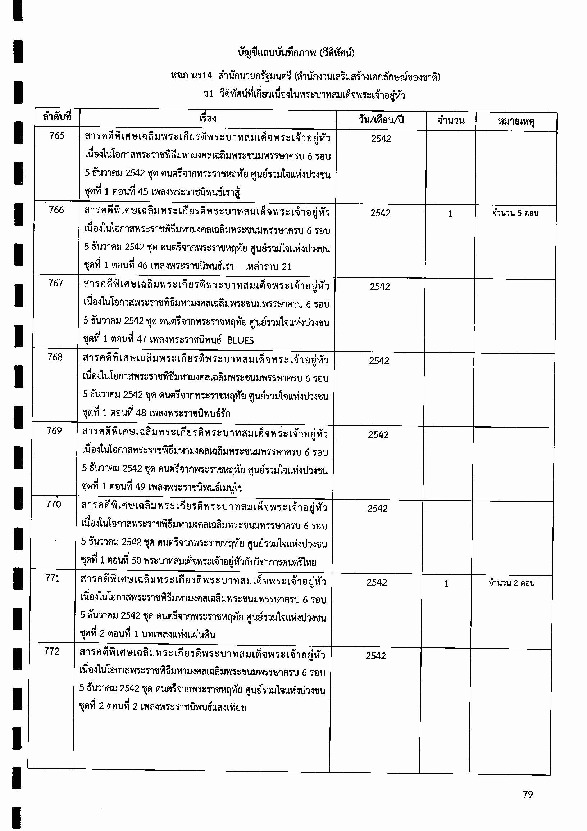 บัญชีแถบบันทึกภาพ (วีดิทัศน์)
หจภ นร14 สำนักนายกรัฐมนตรี (สำนักงานเสริมสร้างเอกลักษณ์ของชาติ)
ว1 วีดิทัศน์ที่เกี่ยวเนื่องในพระบาทสมเด็จพระเจ้าอยู่หัว
ลำดับที่ เรื่อง วัน/เดือน/ปี จำนวน หมายเหตุ
765 สารคดีพิเศษเฉลิมพระเกียรติพระบาทสมเด็จพระเจ้าอยู่หัว 2542
เนื่องในโอกาสพระราชพิธีมหามงคลเฉลิมพระชนมพรรษาครบ 6 รอบ
5 ธันวาคม 2542 ชุด ดนตรีจากพระราชหฤทัย ศูนย์รวมใจแห่งปวงชน
ชุดที่ 1 ตอนที่ 45 เพลงพระราชนิพนธ์เราสู้
766 สารคดีพิเศษเฉลิมพระเกียรติพระบาทสมเด็จพระเจ้าอยู่หัว 2542 1 จำนวน 5 ตอน
เนื่องในโอกาสพระราชพิธีมหามงคลเฉลิมพระชนมพรรษาครบ 6 รอบ
5 ธันวาคม 2542 ชุด ดนตรีจากพระราชหฤทัย ศูนย์รวมใจแห่งปวงชน
ชุดที่ 1 ตอนที่ 46 เพลงพระราชนิพนธ์เรา เหล่าราบ 21
767 สารคดีพิเศษเฉลิมพระเกียรติพระบาทสมเด็จพระเจ้าอยู่หัว 2542
เนื่องในโอกาสพระราชพิธีมหามงคลเฉลิมพระชนมพรรษาครบ 6 รอบ
5 ธันวาคม 2542 ชุด ดนตรีจากพระราชหฤทัย ศูนย์รวมใจแห่งปวงชน
ชุดที่ 1 ตอนที่ 47 เพลงพระราชนิพนธ์ BLUES
768 สารคดีพิเศษเฉลิมพระเกียรติพระบาทสมเด็จพระเจ้าอยู่หัว 2542
เนื่องในโอกาสพระราชพิธีมหามงคลเฉลิมพระชนมพรรษาครบ 6 รอบ
5 ธันวาคม 2542 ชุด ดนตรีจากพระราชหฤทัย ศูนย์รวมใจแห่งปวงชน
ชุดที่ 1 ตอนที่ 48 เพลงพระราชนิพนธ์รัก
769 สารคดีพิเศษเฉลิมพระเกียรติพระบาทสมเด็จพระเจ้าอยู่หัว 2542
เนื่องในโอกาสพระราชพิธีมหามงคลเฉลิมพระชนมพรรษาครบ 6 รอบ
5 ธันวาคม 2542 ชุด ดนตรีจากพระราชหฤทัย ศูนย์รวมใจแห่งปวงชน
ชุดที่ 1 ตอนที่ 49 เพลงพระราชนิพนธ์เมนูไข่
770 สารคดีพิเศษเฉลิมพระเกียรติพระบาทสมเด็จพระเจ้าอยู่หัว 2542
เนื่องในโอกาสพระราชพิธีมหามงคลเฉลิมพระชนมพรรษาครบ 6 รอบ
5 ธันวาคม 2542 ชุด ดนตรีจากพระราชหฤทัย ศูนย์รวมใจแห่งปวงชน
ชุดที่ 1 ตอนที่ 50 พระบาทสมเด็จพระเจ้าอยู่หัวกับวิชาการดนตรีไทย
771 สารคดีพิเศษเฉลิมพระเกียรติพระบาทสมเด็จพระเจ้าอยู่หัว 2542 1 จำนวน 2 ตอน
เนื่องในโอกาสพระราชพิธีมหามงคลเฉลิมพระชนมพรรษาครบ 6 รอบ
5 ธันวาคม 2542 ชุด ดนตรีจากพระราชหฤทัย ศูนย์รวมใจแห่งปวงชน
ชุดที่ 2 ตอนที่ 1 บทเพลงแห่งแผ่นดิน
772 สารคดีพิเศษเฉลิมพระเกียรติพระบาทสมเด็จพระเจ้าอยู่หัว 2542
เนื่องในโอกาสพระราชพิธีมหามงคลเฉลิมพระชนมพรรษาครบ 6 รอบ
5 ธันวาคม 2542 ชุด ดนตรีจากพระราชหฤทัย ศูนย์รวมใจแห่งปวงชน
ชุดที่ 2 ตอนที่ 2 เพลงพระราชนิพนธ์แสงเทียน
79